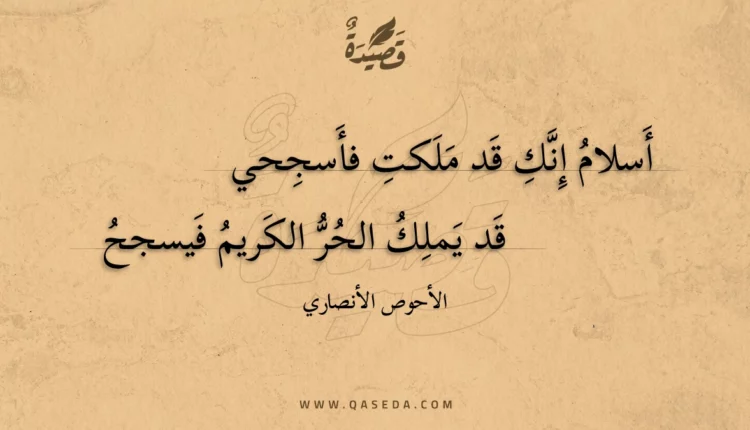 قَصِيْدَةٌ
أَسلامُ إِنَّكِ قَد مَلَكتِ فأَسجِحي
قَد يَملِكُ الحُرُّ الكَريمُ فَيسجحُ
الأحوص الأنصاري
WWW.QASEDA.COM